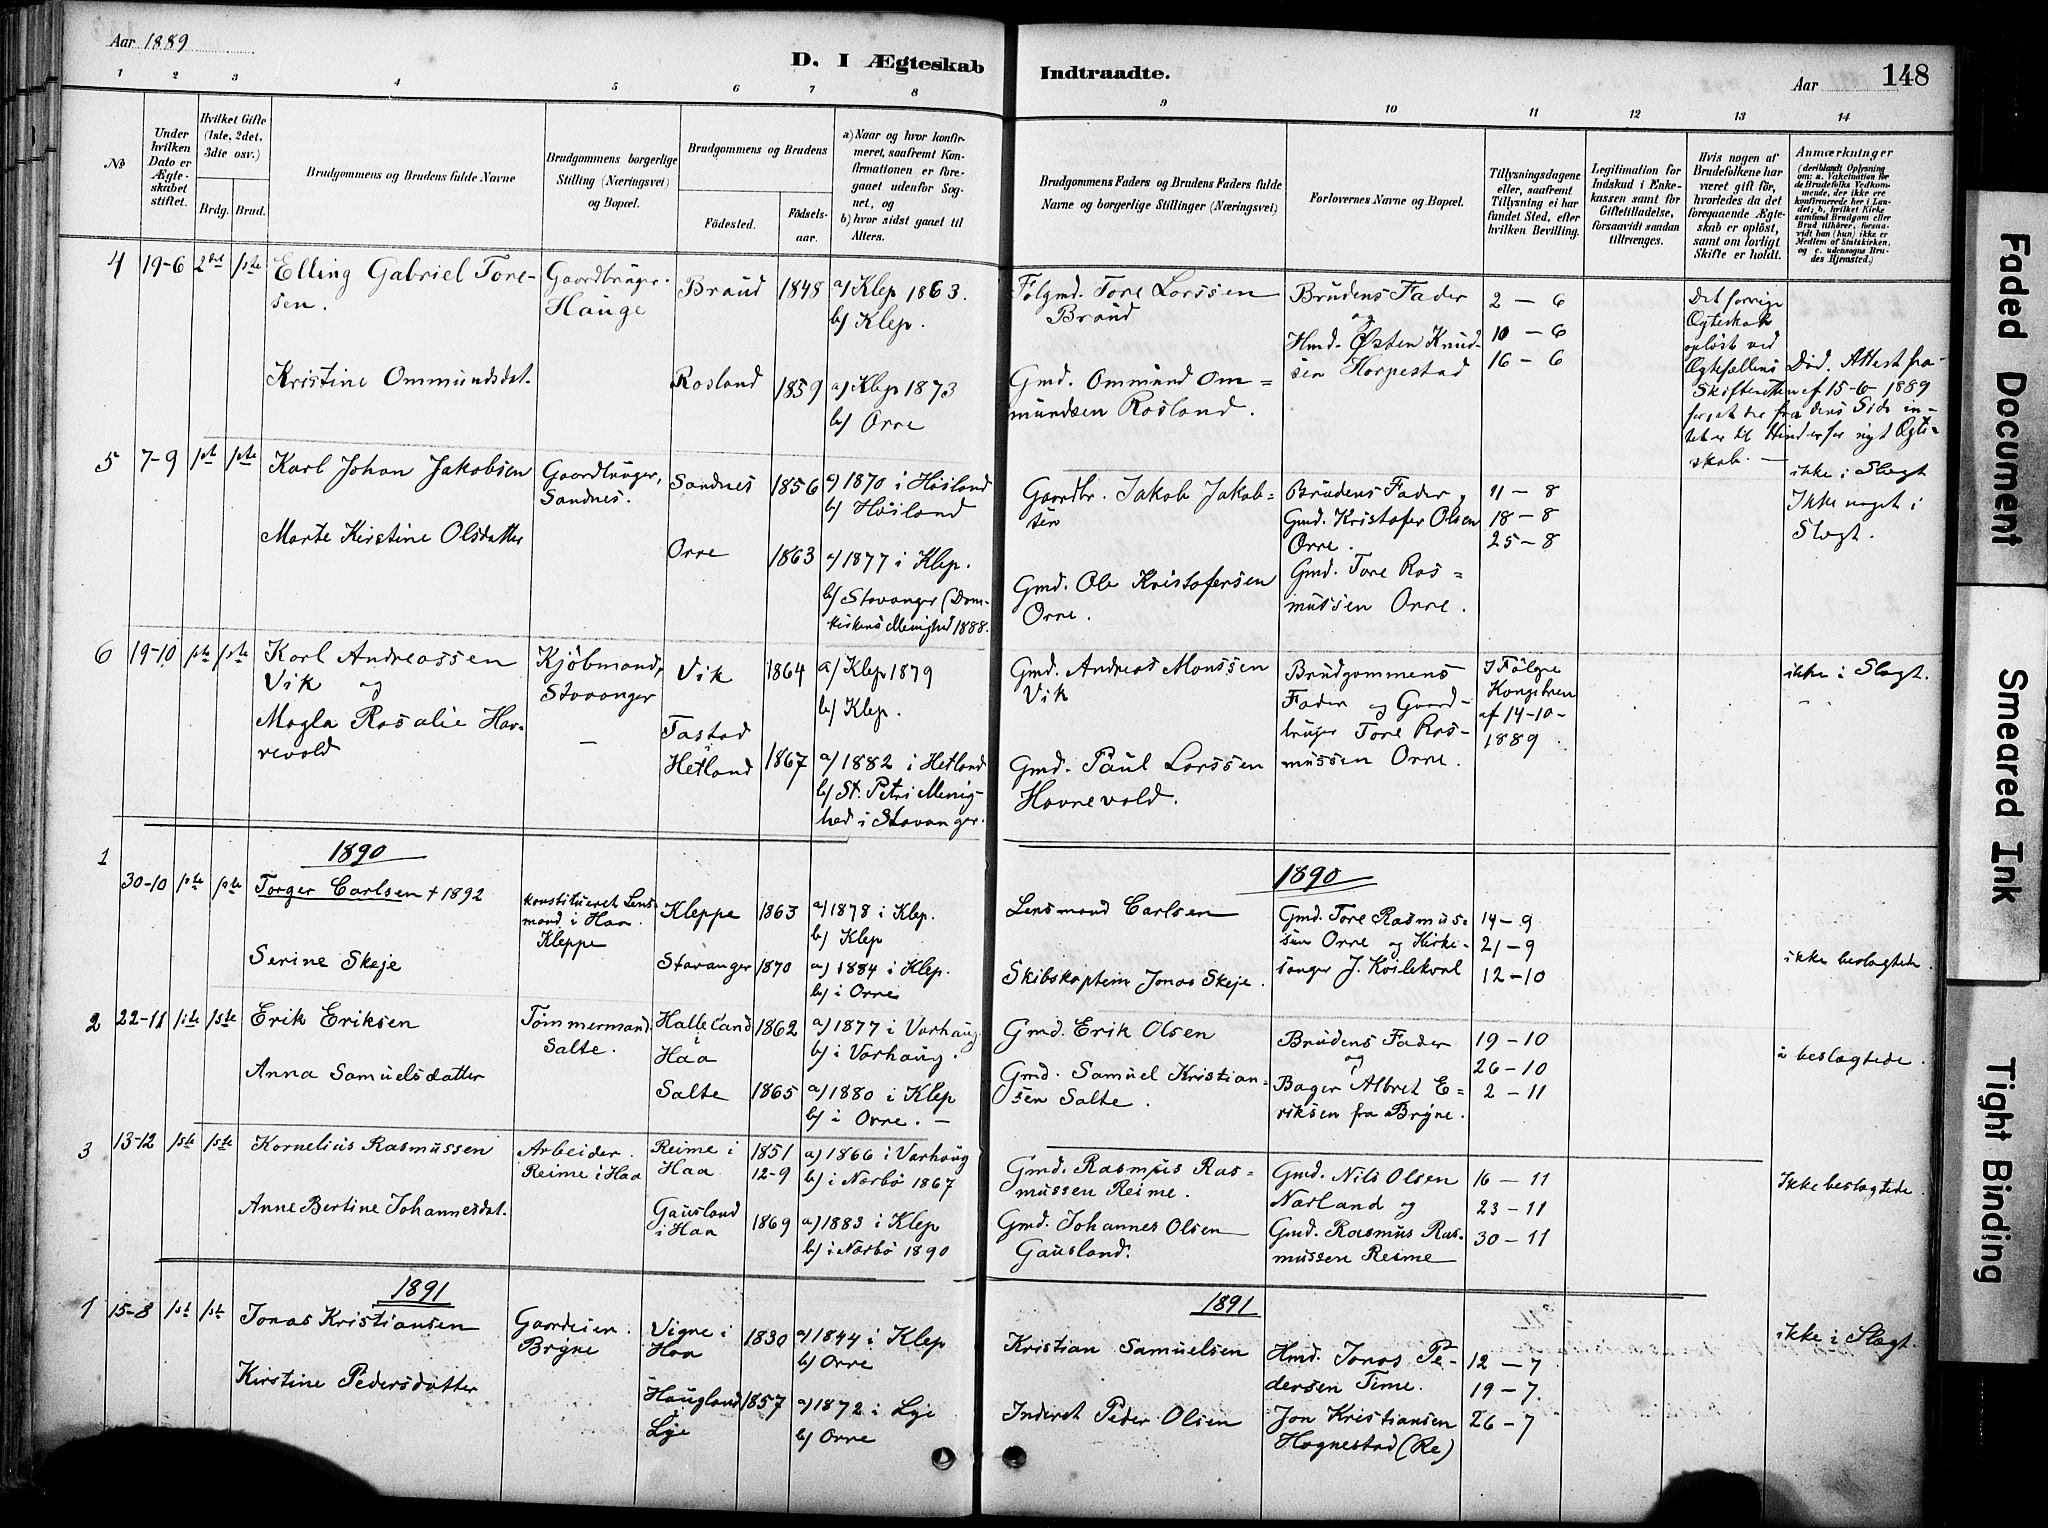 Aar 1889
D. I Ægteskab Indtraadte.
Aar 148
1 2 3 4 5 6 7 8 9 10 11 12 13 14
No
Under hvilken Dato er Ægteskabet stiftet.
Hvilket Gifte (1ste, 2det, 3die osv.)
Brdg. Brud.
Brudgommens og Brudens fulde Navne
Brudgommens borgerlige Stilling (Næringsvei) og Bopæl.
Brudgommens og Brudens
Fødested.
Fødselsaar.
a) Naar og hvor konfirmeret, saafremt Konfirmationen er foregaaet udenfor Sognet, og
b) hvor sidst gaaet til Alters.
Brudgommens Faders og Brudens Faders fulde Navne og borgerlige Stillinger (Næringsvei)
Forlovernes Navne og Bopæl.
Tillysningsdagene eller, saafremt Tillysning ei har fundet Sted, efter hvilken Bevilling.
Legitimation for Indskud i Enkekassen samt for Giftetilladelse, forsaavidt saadan tiltrænges.
Hvis nogen af Brudefolkene har været gift før, hvorledes da det foregaaende Ægteskab er opløst, samt om lovligt Skifte er holdt.
Anmærkninger
(deriblandt Oplysning om: a. Vakcination for de Brudefolks Vedkommende, der ikke ere konfirmerede her i Landet; b, hvilket Kirkesamfund Brudgom eller Brud tilhører, forsaavidt han (hun) ikke er Medlem af Statskirken, og c. udensogns Brudes Hjemsted.)
4 19-6 2det 1ste Elling Gabriel Toresen.
Gaardbruger. Hauge
Braud 1848 a) Klep 1863.
b) Klep.
Følgmd. Tore Larssen Braud
Brudens Fader og Hmd. Østen Knudsen Horpestad
2 – 6
10 – 6
16 – 6
Det forrige Ægteskab opløst ved Ægtefællens Død. Attest fra Skifteretten af 15-6-1889 for, at der fra dens Side intet er til Hinder for nyt Ægteskab. –
Kristine Ommundsdat.
Rosland 1859 a) Klep 1873
b) Orre
Gmd. Ommund Ommundsen Rosland.
ikke i Slægt
5 7-9 1st 1ste Karl Johan Jakobsen
Gaardbruger, Sandnes.
Sandnes 1856 a) 1870 i Høiland
b) Høiland
Gaardbr. Jakob Jakobsen
Brudens Fader, Gmd. Kristofer Olsen Orre.
Gmd. Tore Rasmussen Orre.
11 – 8
18 – 8
25 – 8
Ikke noget i Slægt.
Marte Kirstine Olsdatter
Orre 1863 a) 1877 i Klep.
b) Stavanger (Domkirkens Menighed 1888.
Gmd. Ole Kristofersen Orre.
6 19-10 1ste 1ste Karl Andreassen Vik og
Kjøbmand, Stavanger
Vik 1864 a) Klep 1879
b) Klep.
Gmd. Andreas Monssen Vik
Brudgommens Fader og Gaardbruger Tore Rasmussen Orre.
I Følge Kongebrev af 14-10-1889
ikke i Slægt.
Magla Rosalie Havrevold
–
Tastad i Hetland 1867 a) 1882 i Hetland
b) St. Petri Menighed i Stavanger.
Gmd. Paul Larssen Havrevold.
1890
1890
1 30-10 1ste 1ste Torger Carlsen + 1892
konstitueret Lensmand i Haa. Kleppe
Kleppe 1863 a) 1878 i Klep.
b) Klep
Lensmand Carlsen
Gmd. Tore Rasmussen Orre og Kirkesanger J. Kvilekval
14 – 9
21 – 9
12 – 10
ikke beslægtede.
Serine Skeje
Stavanger 1870 a) 1884 i Klep.
b) i Orre
Skibskaptein Jonas Skeje.
2 22-11 1ste 1ste Erik Eriksen
Tømmermand. Salte.
Halleland i Haa 1862 a) 1877 i Varhaug
b) i Varhaug.
Gmd. Erik Olsen
Brudens Fader og Bager Albret Eriksen fra Bryne.
19 – 10
26 – 10
2 – 11
i beslægtede.
Anna Samuelsdatter
Salte 1865 a) 1880 i Klep
b) i Orre. –
Gmd. Samuel Kristiansen Salte.
3 13-12 1ste 1ste Kornelius Rasmussen
Arbeider. Reime i Haa
Reime i Haa 1851 12-9 a) 1866 i Varhaug
b) i Nærbø 1867
Gmd. Rasmus Rasmussen Reime.
Gmd. Nils Olsen Nærland og
Gmd. Rasmus Rasmussen Reime
16 – 11
23 – 11
30 – 11
Ikke beslægtede.
Anne Bertine Johannesdat.
Gausland i Haa 1869 a) 1883 i Klep
b) i Nærbø 1890
Gmd. Johannes Olsen Gausland.
1891
1891
1 15-8 1st 1st Jonas Kristiansen
Gaardeier. Bryne
Vigre i Haa 1830 a) 1844 i Klep
b) Orre
Kristian Samuelsen
Hmd. Jonas Pedersen Time.
Jon Kristiansen Hognestad (Re)
12 – 7
19 – 7.
26 – 7
ikke i Slægt.
Kirstine Pedersdatter
Haugland Lye 1857 a) 1872 i Lye
b) Orre
Inderst Peder Olsen
Faded Document
Smeared Ink
Tight Binding